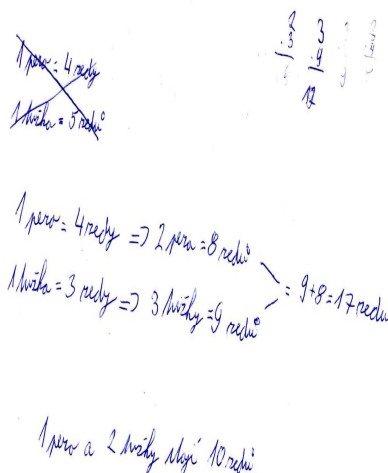 1 pero = 4 redy
1 tužka = 5 redů
17
1 pero = 4 redy => 2 pera = 8 redů
1 tužka = 3 redy => 3 tužky = 9 redů
= 9+8=17 redu
1 pero a 2 tužky stojí 10 redů